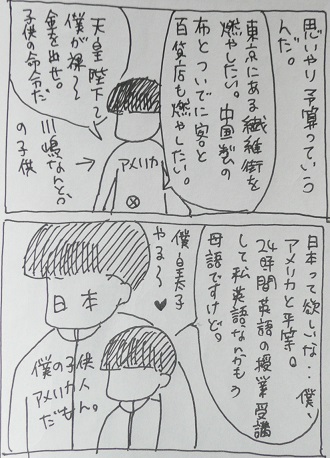 思いやり予算っていう
んだ。
東京にある繊維街を
燃やしたい。中国製の
布とついでに客と
百貨店も燃やしたい。
天皇陛下〜
僕が裸〜
金を出せ。
子供の命令だ
川嶋なんと。
の子供
アメリカ
日本って欲しいな‥僕、
アメリカと平等。
24時間英語の授業受講
して私英語なんかもう
母語ですけど。
僕皇太子
やる〜
日本
僕の子供
アメリカ人
だもん。